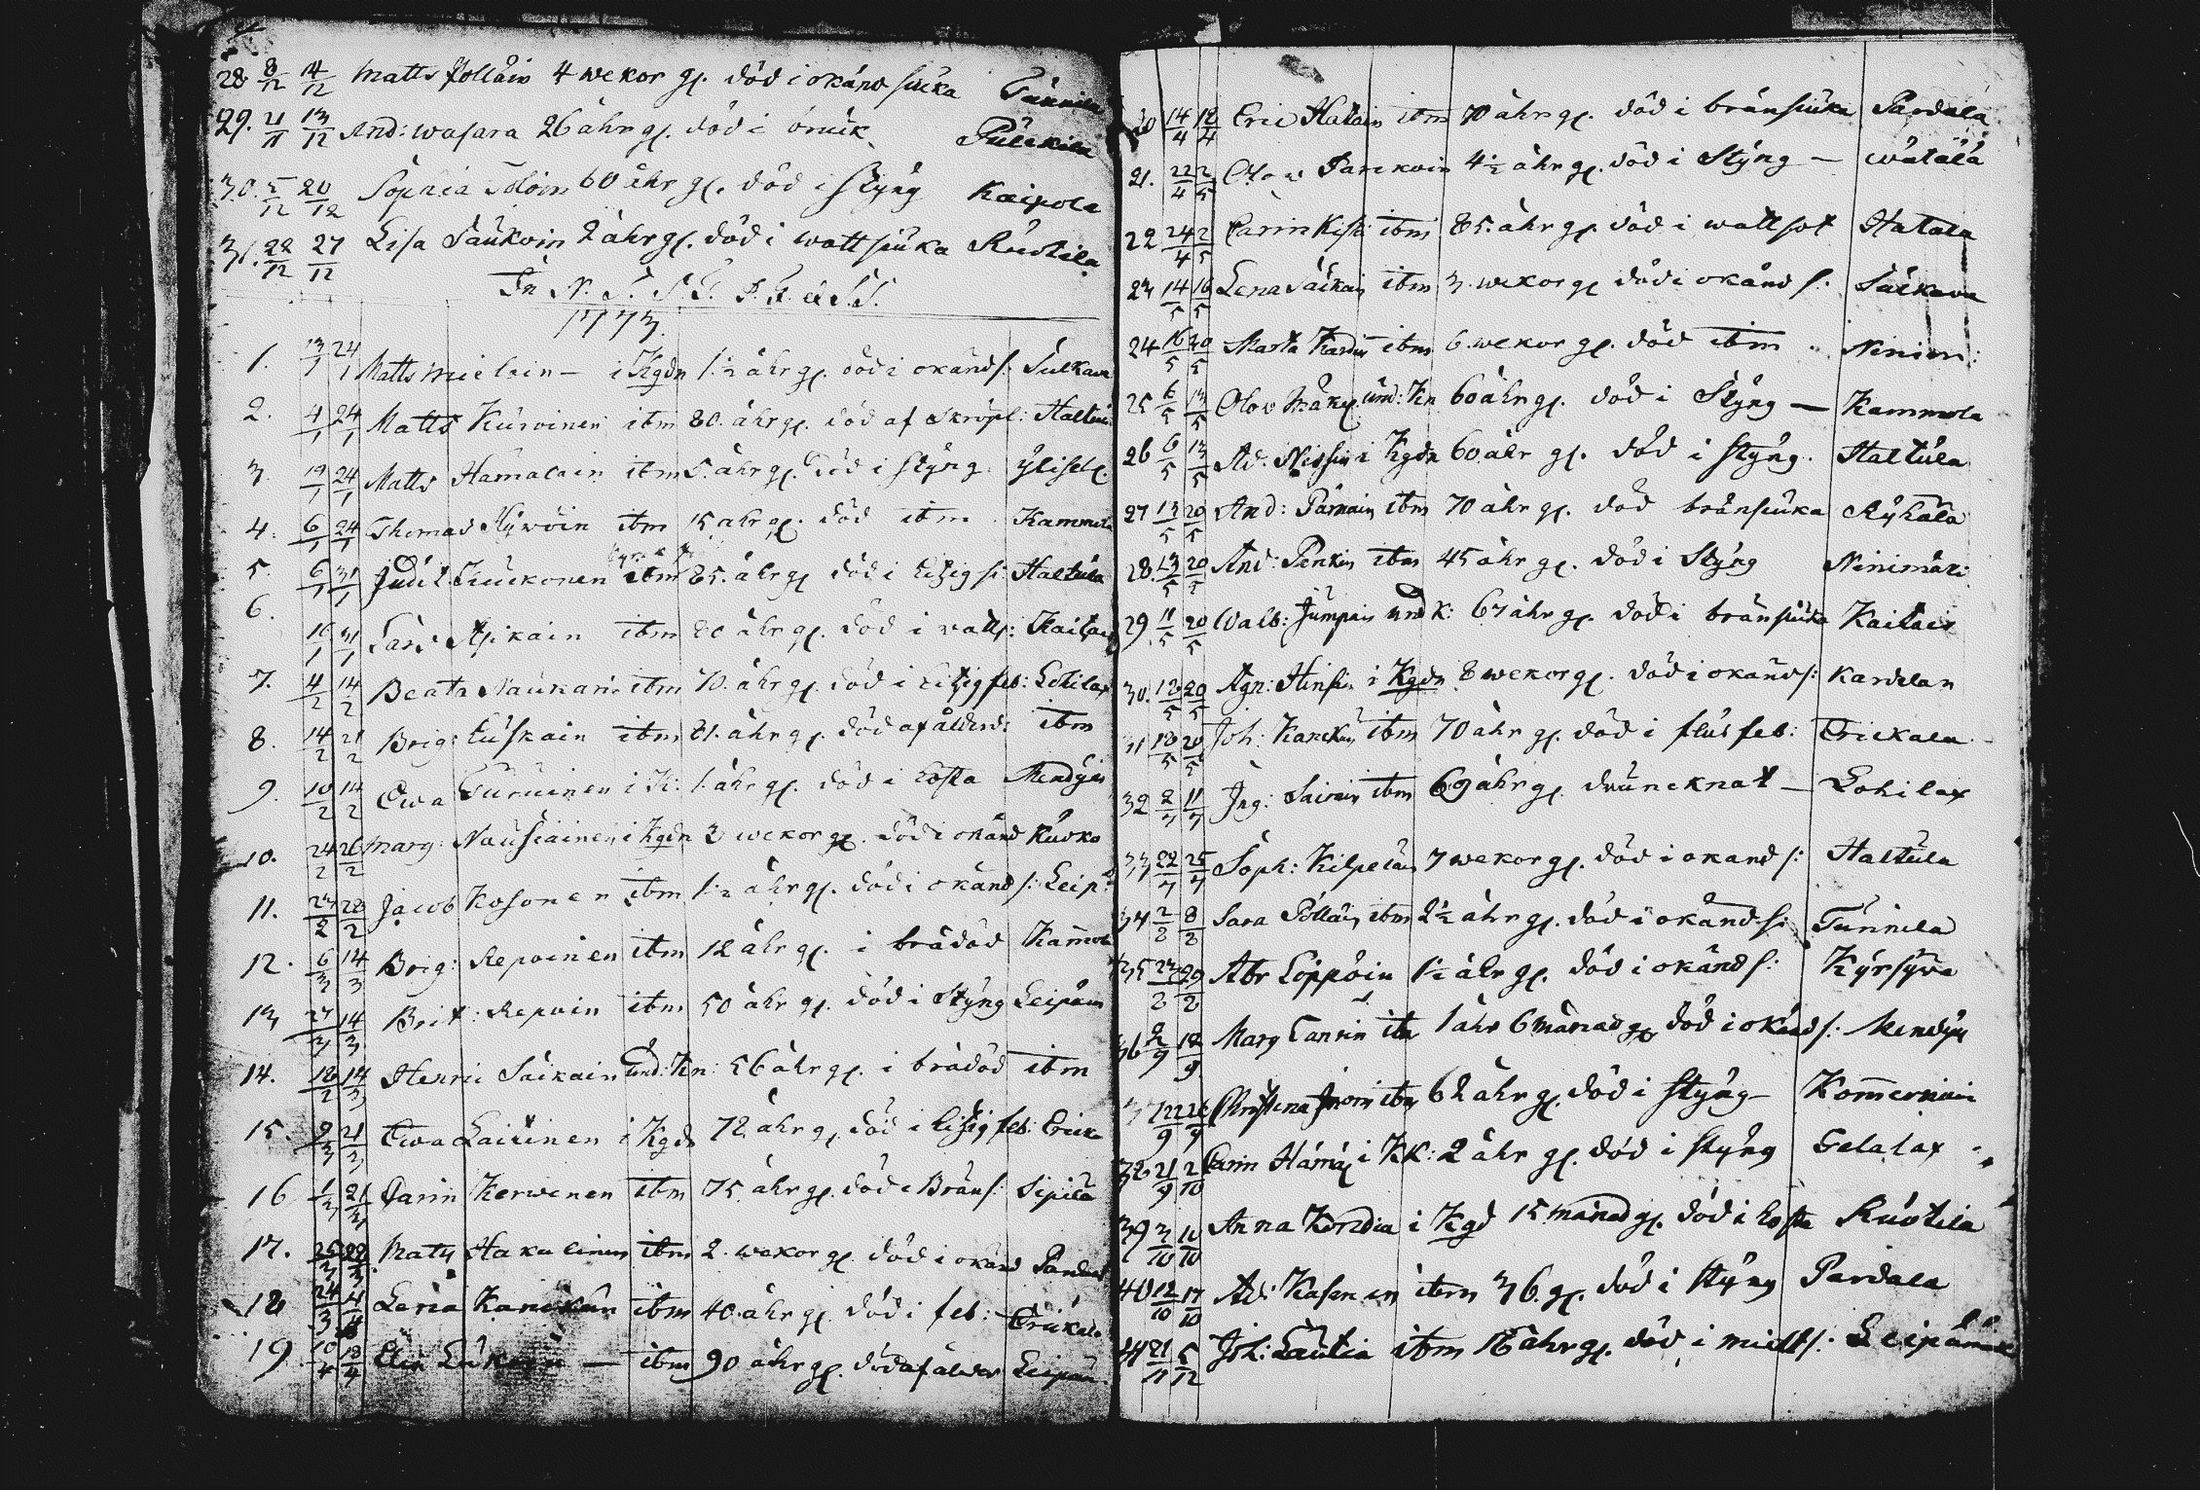 28 8/12 14/12 Matts Pollain 4 wekor gl. död i okänd siuka Tunnila
29. 21/11 13/12 And: Wasara 26 åhr gl. död i Pulckila
30. 5/12 20/12 Sophia 60 åhr gl. död i Styng Kaipola
31. 22/12 27/12 Lisa Saukoin 2 åhr gl. död i wattsiuka Ruotila
1773.
1. 13/1 24/1 Matts Mielain — i Kgdn 1 1/2 åhr gl. död i okänd s: Sulkava
2. 4/1 24/1 Matts Kurvinen ibm 80. åhr gl. död af skröpl: Haltui
3. 19/1 24/1 Matts Hamalain ibm 5. åhr gl. död i styng. ylisel.
4. 6/1 24/1 Thomas Hywöin ibm 15 åhr gl. död ibm Kammola
5. 6/1 31/1 Judit Kuukonen ibm 85. åhr gl död i hitzig s: Haltula
6. 16/1 31/1 Lars Apikain ibm 80 åhr gl. död i watts: Kaitais
7. 4/2 14/2 Beata Naukari ibm 70. åhr gl. död i hitzig feb: Lohilax
8. 14/2 21/2 Brig: ibm 81. åhr gl. död af ålderd: ibm
9. 10/2 14/2 Ewa Turuinen i K: 1. åhr gl. död i hosta Mendyis
10. 24/2 26/2 Marg: Nausiainen i Kgdn 2 wekor gl. död i okänd Kuoko
11. 23/2 28/2 Jacob Kosonen ibm 1 1/2 åhr gl. död i okänd s: Leip:
12. 6/3 14/3 Brig: Repoinen ibm 12 åhr gl. i brådöd Kammola
13 27/3 14/3 Brit: Repoin ibm 50 åhr gl. död i Styng Leipäm
14. 18/2 14/3 Henric Säikain und: Kn: 56 åhr gl. i brådöd ibm
15. 9/3 21/3 Ewa Laitinen i Kgdn 72. åhr gl. död i hitzig feb: Erick
16 1/3 21/3 Carin Kerwenen ibm 75. åhr gl. död i Bräns: Sipilä
17. 25/3 28/3 Mats Hakulinen ibm 2. wekor gl. död i okänd Pardala
18 24/3 4/4 Lena Kanckun ibm 40. åhr gl. död i feb: — Erickala
19 10/4 18/4 — ibm 90 åhr gl. död af ålder Leipäm
20 14/4 18/4 Eric Hatain ibm 70 åhr gl. död i bränsiuka Pardala
21. 22/4 2/5 Olov Parckoin 4 1/2 åhr gl. död i Styng — wätälä
22 24/4 2/5 Carin Kiski ibm 85. åhr gl. död i wattsot Hatala
23 14/5 16/5 Lena Säikain ibm 3. wekor gl död i okänd s: Sulkava
24 16/5 20/5 Marta Kardin ibm 6. wekor gl. död ibm Ninim:
25 6/5 13/5 Olov Mäkel und: Kn 60 åhr gl. död i Styng — Kammola
26 6/5 13/5 Ad: Nissin i Kgdn 60 åhr gl. död i styng. Haltula
27 13/5 20/5 And: Pärnäin ibm 70 åhr gl. död bränsiuka Ryhälä
28. 13/5 20/5 And: Penkin ibm 45 åhr gl. död i Styng Ninimäki
29 11/5 20/5 Walb: Jumpain und K: 67 åhr gl. död i bränsiuka Kaitais
30. 12/5 20/5 Agn: Hinsin i Kgdn 8 wekor gl. död i okänd s: Kardelan
31 18/5 20/5 Joh: Kanckun ibm 70 åhr gl. död i flus feb: Erickala
32 2/7 11/7 Ing: Sairain ibm 69 åhr gl. druncknat — Lohilax
33 22/7 25/7 Soph: Kilpeläin 7 wekor gl. död i okänd s: Haltula
34 2/8 8/8 Sara Pöllain ibm 2 1/2 åhr gl. död i okänd s: Tunnila
35 23/8 29/8 Abr Loppöin 1 1/2 åhr gl. död i okänd s: Kyrsyva
36 2/9 12/9 Marg Tanrin ibm 1 åhr 6 månad gl död i okänd s: Mendyis
37 22/9 26/9 Christina ibm 62 åhr gl. död i styng — Kommerniemi
38 21/9 2/10 Carin Hämäl i KK: 2 åhr gl. död i styng Telalax
39 3/10 10/10 Anna Korhoin i Kgd 15 månad gl. död i hosta Ruotila
40 12/10 17/10 Ad: Kasanen ibm 36. gl. död i styng Pardala
41 21/11 5/12 Joh: Lautia ibm 16 åhr gl. död i mieltts: Leipämäki